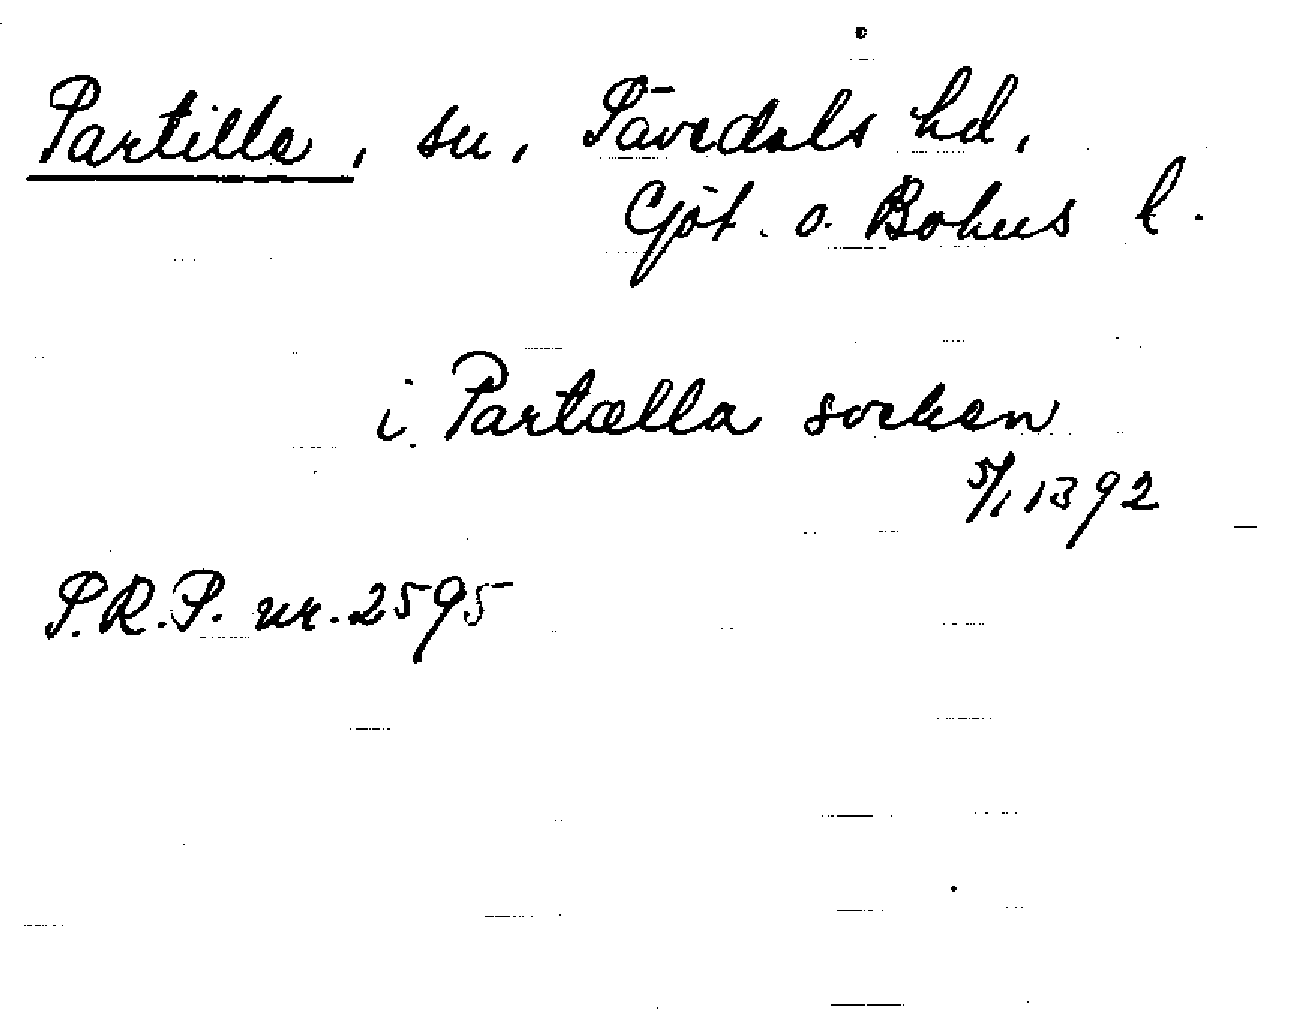 Partille, sn, Sävedals hd,
Göt. o. Bohus l.
i Partælla socken
5/1 1392
S.R.P. nr. 2595